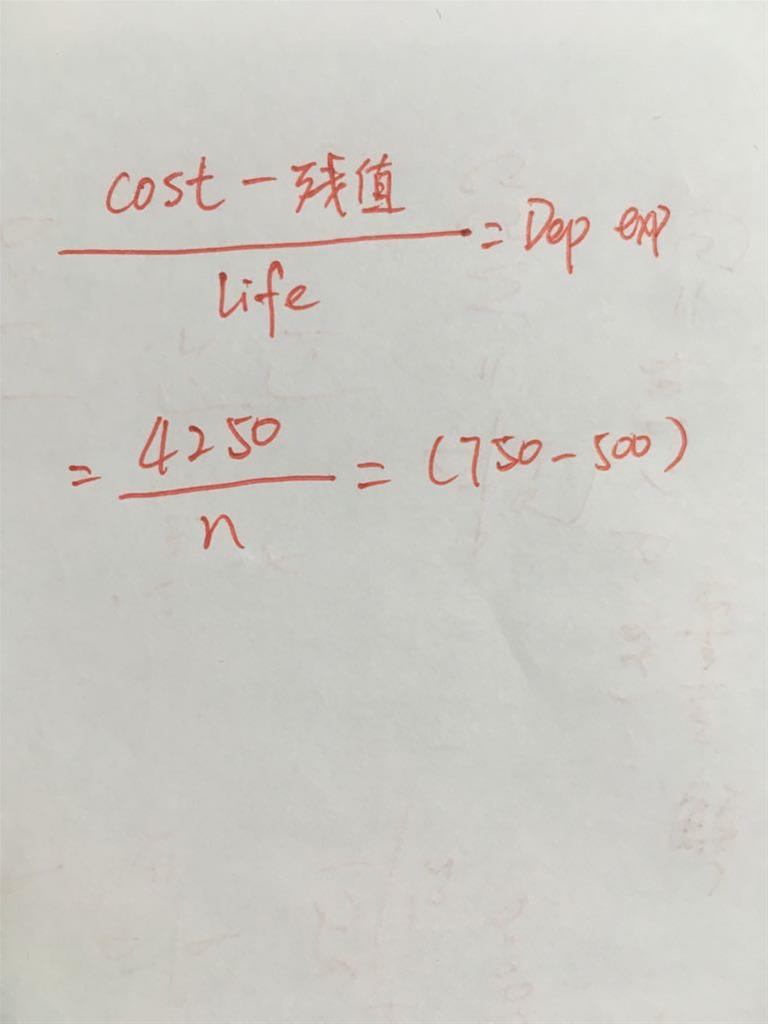 cost - 残值
life
= Dep exp
= 4250
n
= (750-500)